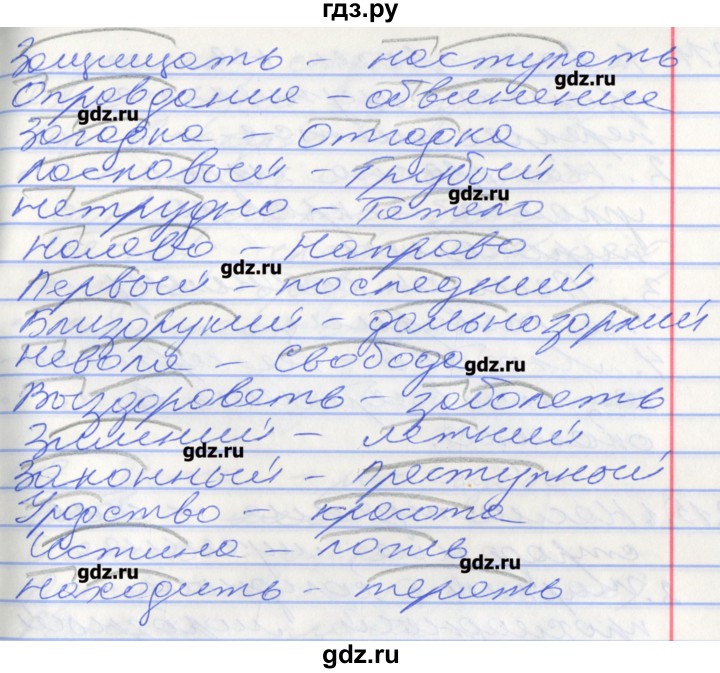 гдз.ру
Защищать – наступать
gdz.ru
Оправдание – обвинение
gdz.ru
Загадка – Отгадка
Ласковый – Грубый
gdz.ru
Нетрудно – Тяжело
Налево – Направо
gdz.ru
Первый – последний
Близорукий – дальнозоркий
Неволя – Свобода
gdz.ru
Выздоровать – заболеть
Зимний – летний
gdz.ru
Законный – преступный
gdz.ru
Уродство – красота
Истина – ложь
gdz.ru
gdz.ru
Находить – терять
gdz.ru